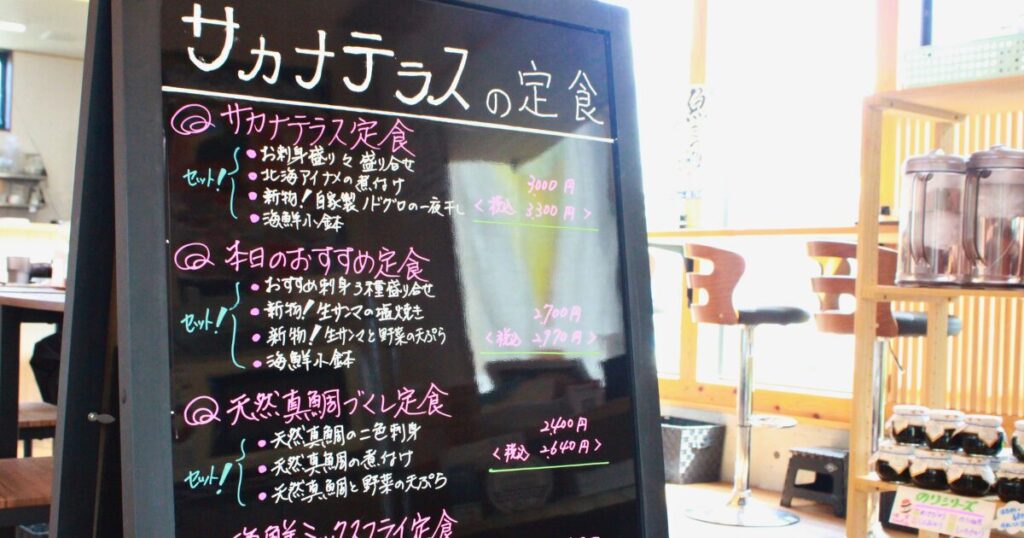 サカナテラスの定食
サカナテラス定食
セット!
お刺身盛り々盛り合せ
北海アイナメの煮付け
新物!自家製ノドグロの一夜干し
海鮮小鉢
3000円
<税込 3,300円>
本日のおすすめ定食
セット!
おすすめ刺身3種盛り合せ
新物!生サンマの塩焼き
新物!生サンマと野菜の天ぷら
海鮮小鉢
2,700円
<税込 2,970円>
天然真鯛づくし定食
セット!
天然真鯛の二色刺身
天然真鯛の煮付け
天然真鯛と野菜の天ぷら
2400円
<税込 2,640円>
海鮮ミックスフライ定食
のりシリーズ